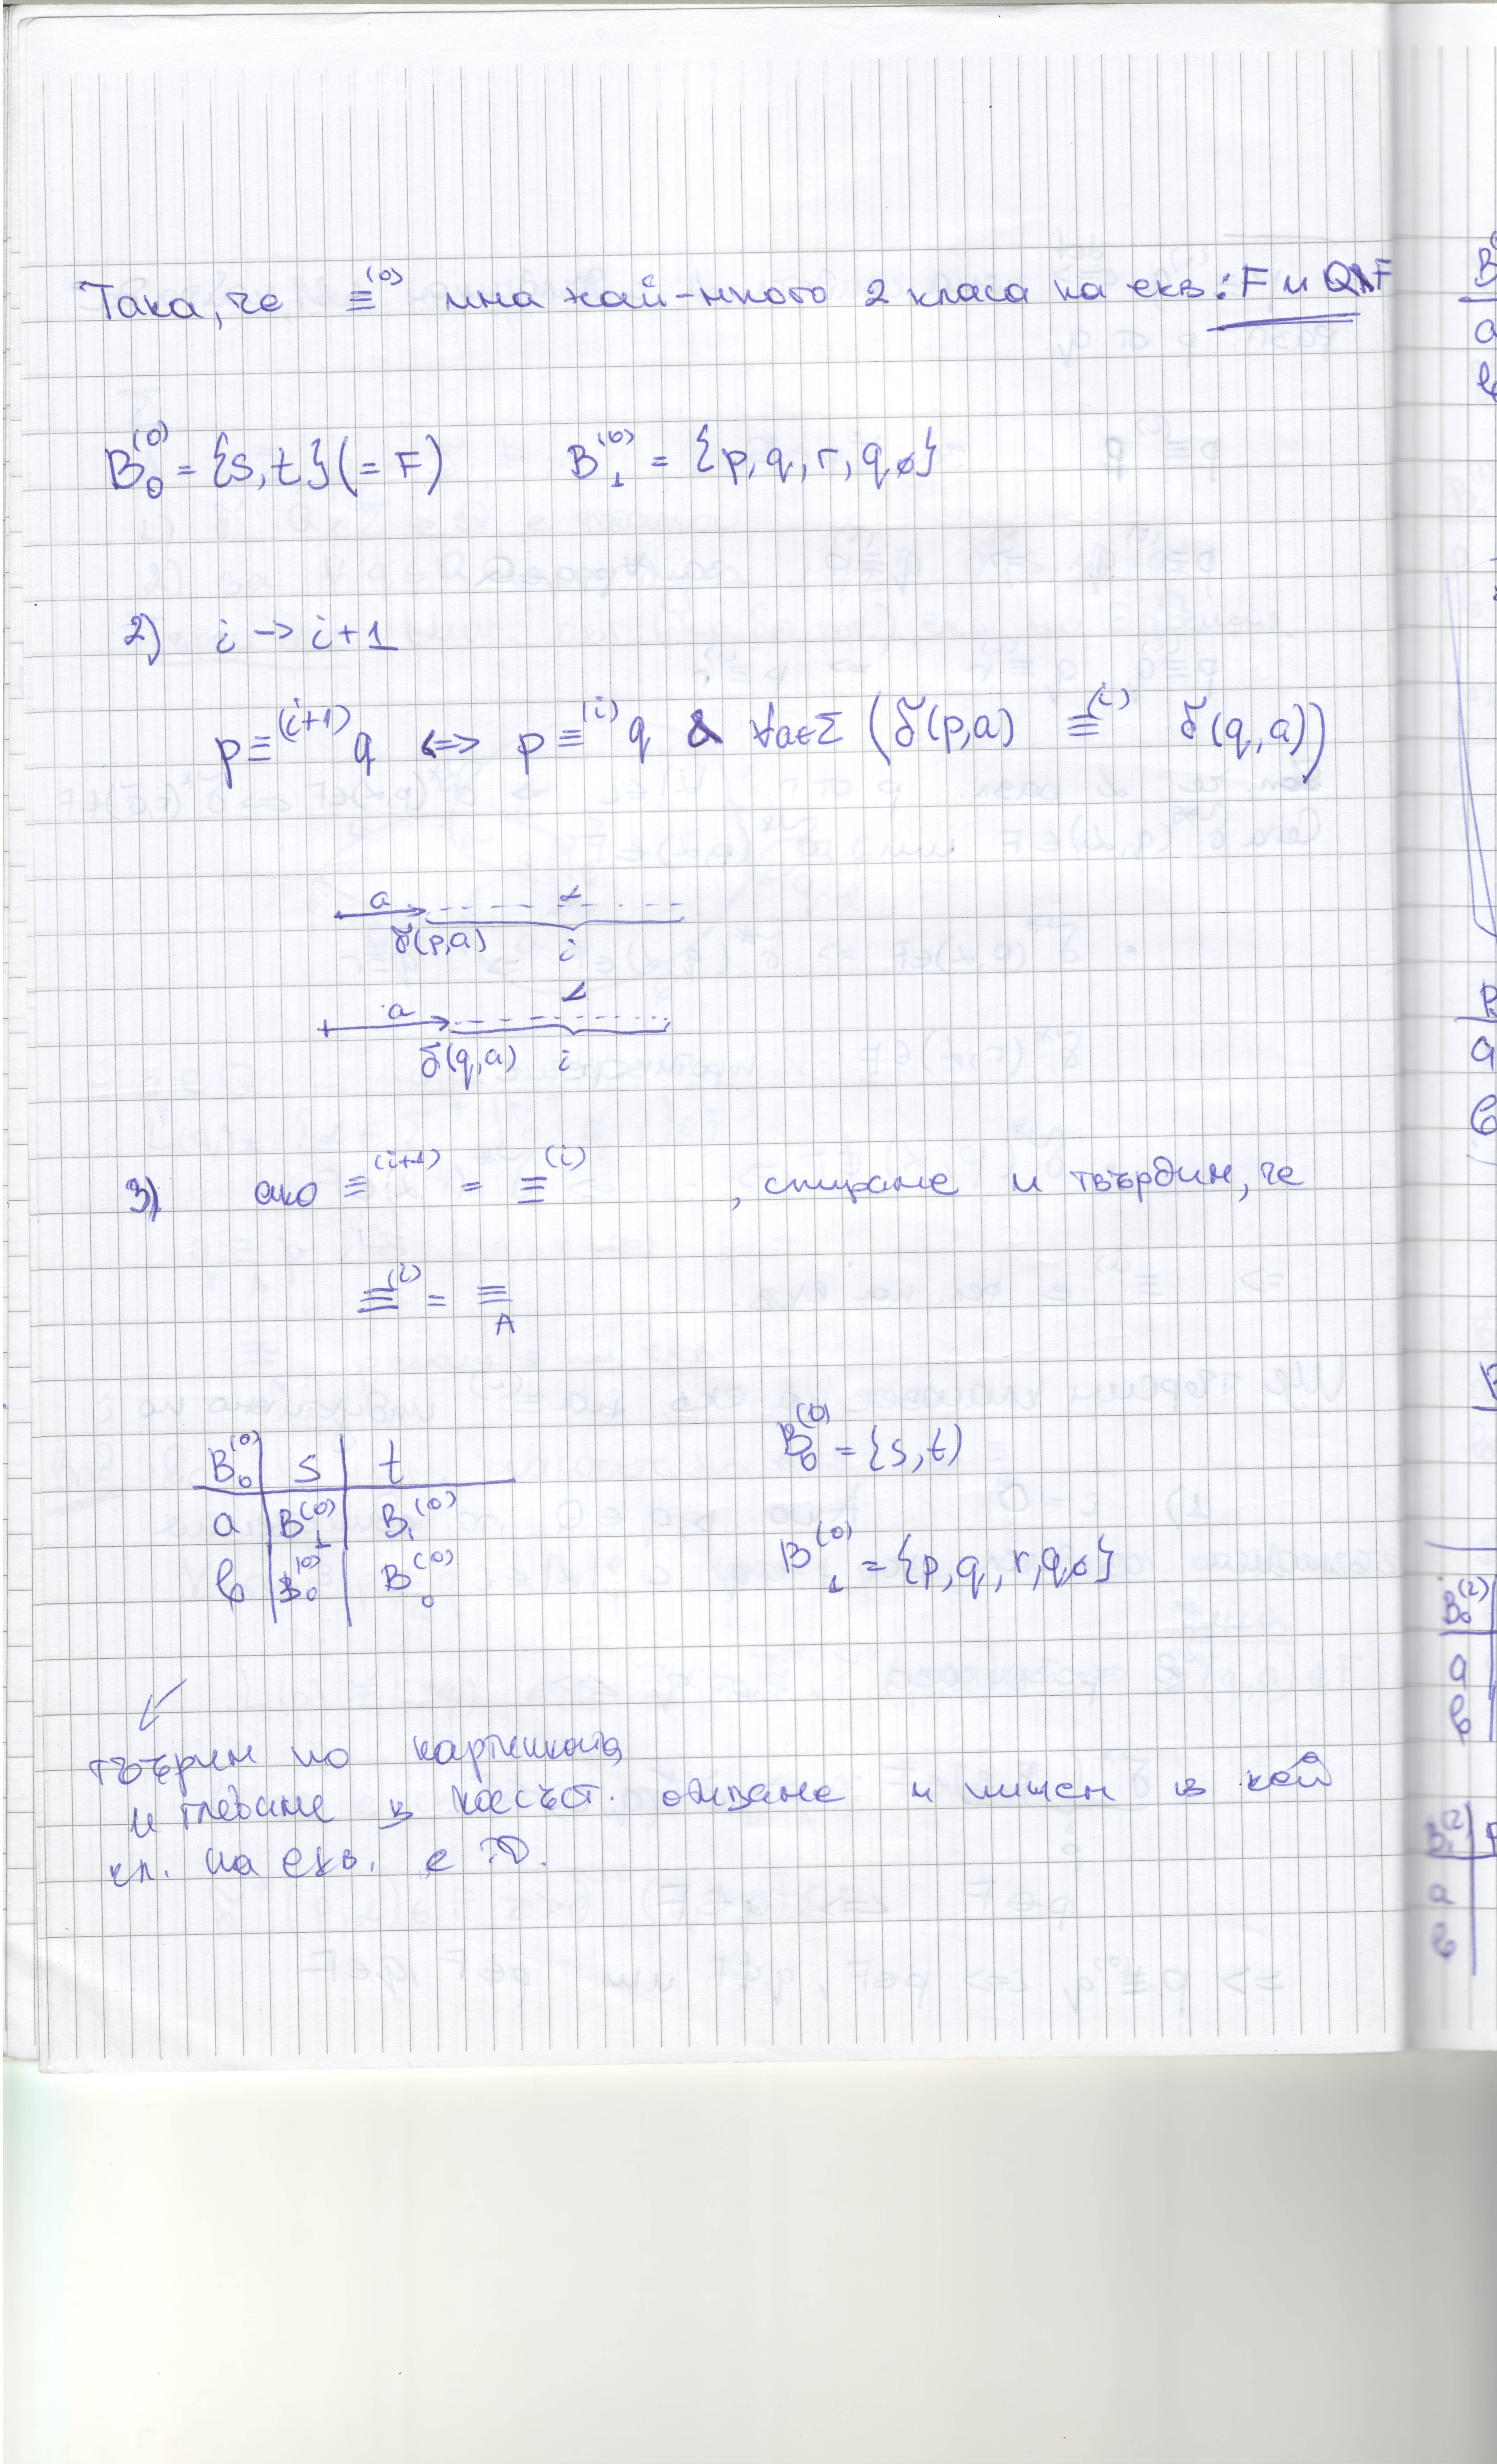 Така, че ≡⁽⁰⁾ има най-много 2 класа на екв.: F и Q\F
B₀⁽⁰⁾ = {s, t} (= F) B₁⁽⁰⁾ = {p, q, r, q₀}
2) i -> i+1
p ≡⁽ⁱ⁺¹⁾ q <=> p ≡⁽ⁱ⁾ q & ∀a∈Σ (δ(p,a) ≡⁽ⁱ⁾ δ(q,a))
a α
δ(p,a) i
a α
δ(q,a) i
3) ако ≡⁽ⁱ⁺¹⁾ = ≡⁽ⁱ⁾ , спираме и твърдим, че
≡⁽ⁱ⁾ = ≡_A
B₀⁽⁰⁾ = {s, t)
B₀⁽⁰⁾ | s | t
a | B₁⁽⁰⁾ | B₁⁽⁰⁾
b | B₀⁽⁰⁾ | B₀⁽⁰⁾
B₁⁽⁰⁾ = {p, q, r, q₀}
по картинката
и гледаме в и пишем в кой
кл. на екв. е